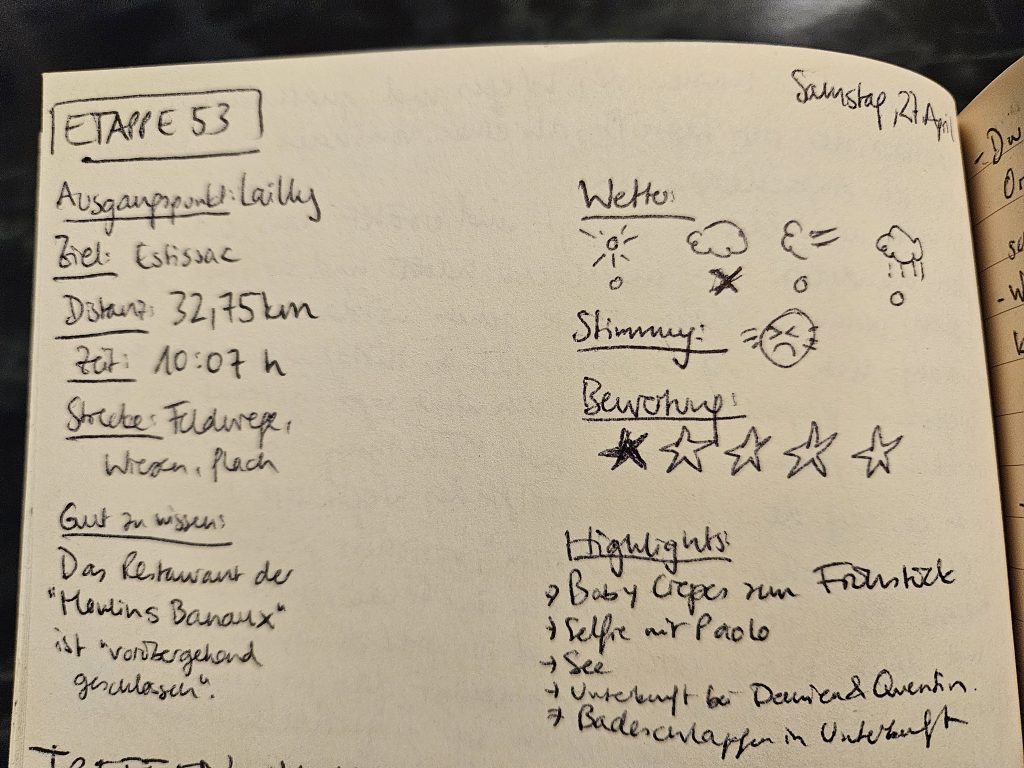 ETAPPE 53
Samstag, 27 April
Ausgangspunkt: Lailly
Ziel: Estissac
Distanz: 32,75km
Zeit: 10:07 h
Strecke: Feldwege,
Wiesen, flach
Gut zu wissen:
Das Restaurant der
"Moulins Banaux"
ist "vorübergehend
geschlossen".
Wetter:
Stimmung:
Bewertung:
Highlights:
→ Baby Crêpes zum Frühstück
→ Selfie mit Paolo
→ See
→ Unterkunft bei Damien & Quentin.
→ Badeschlappen in Unterkunft